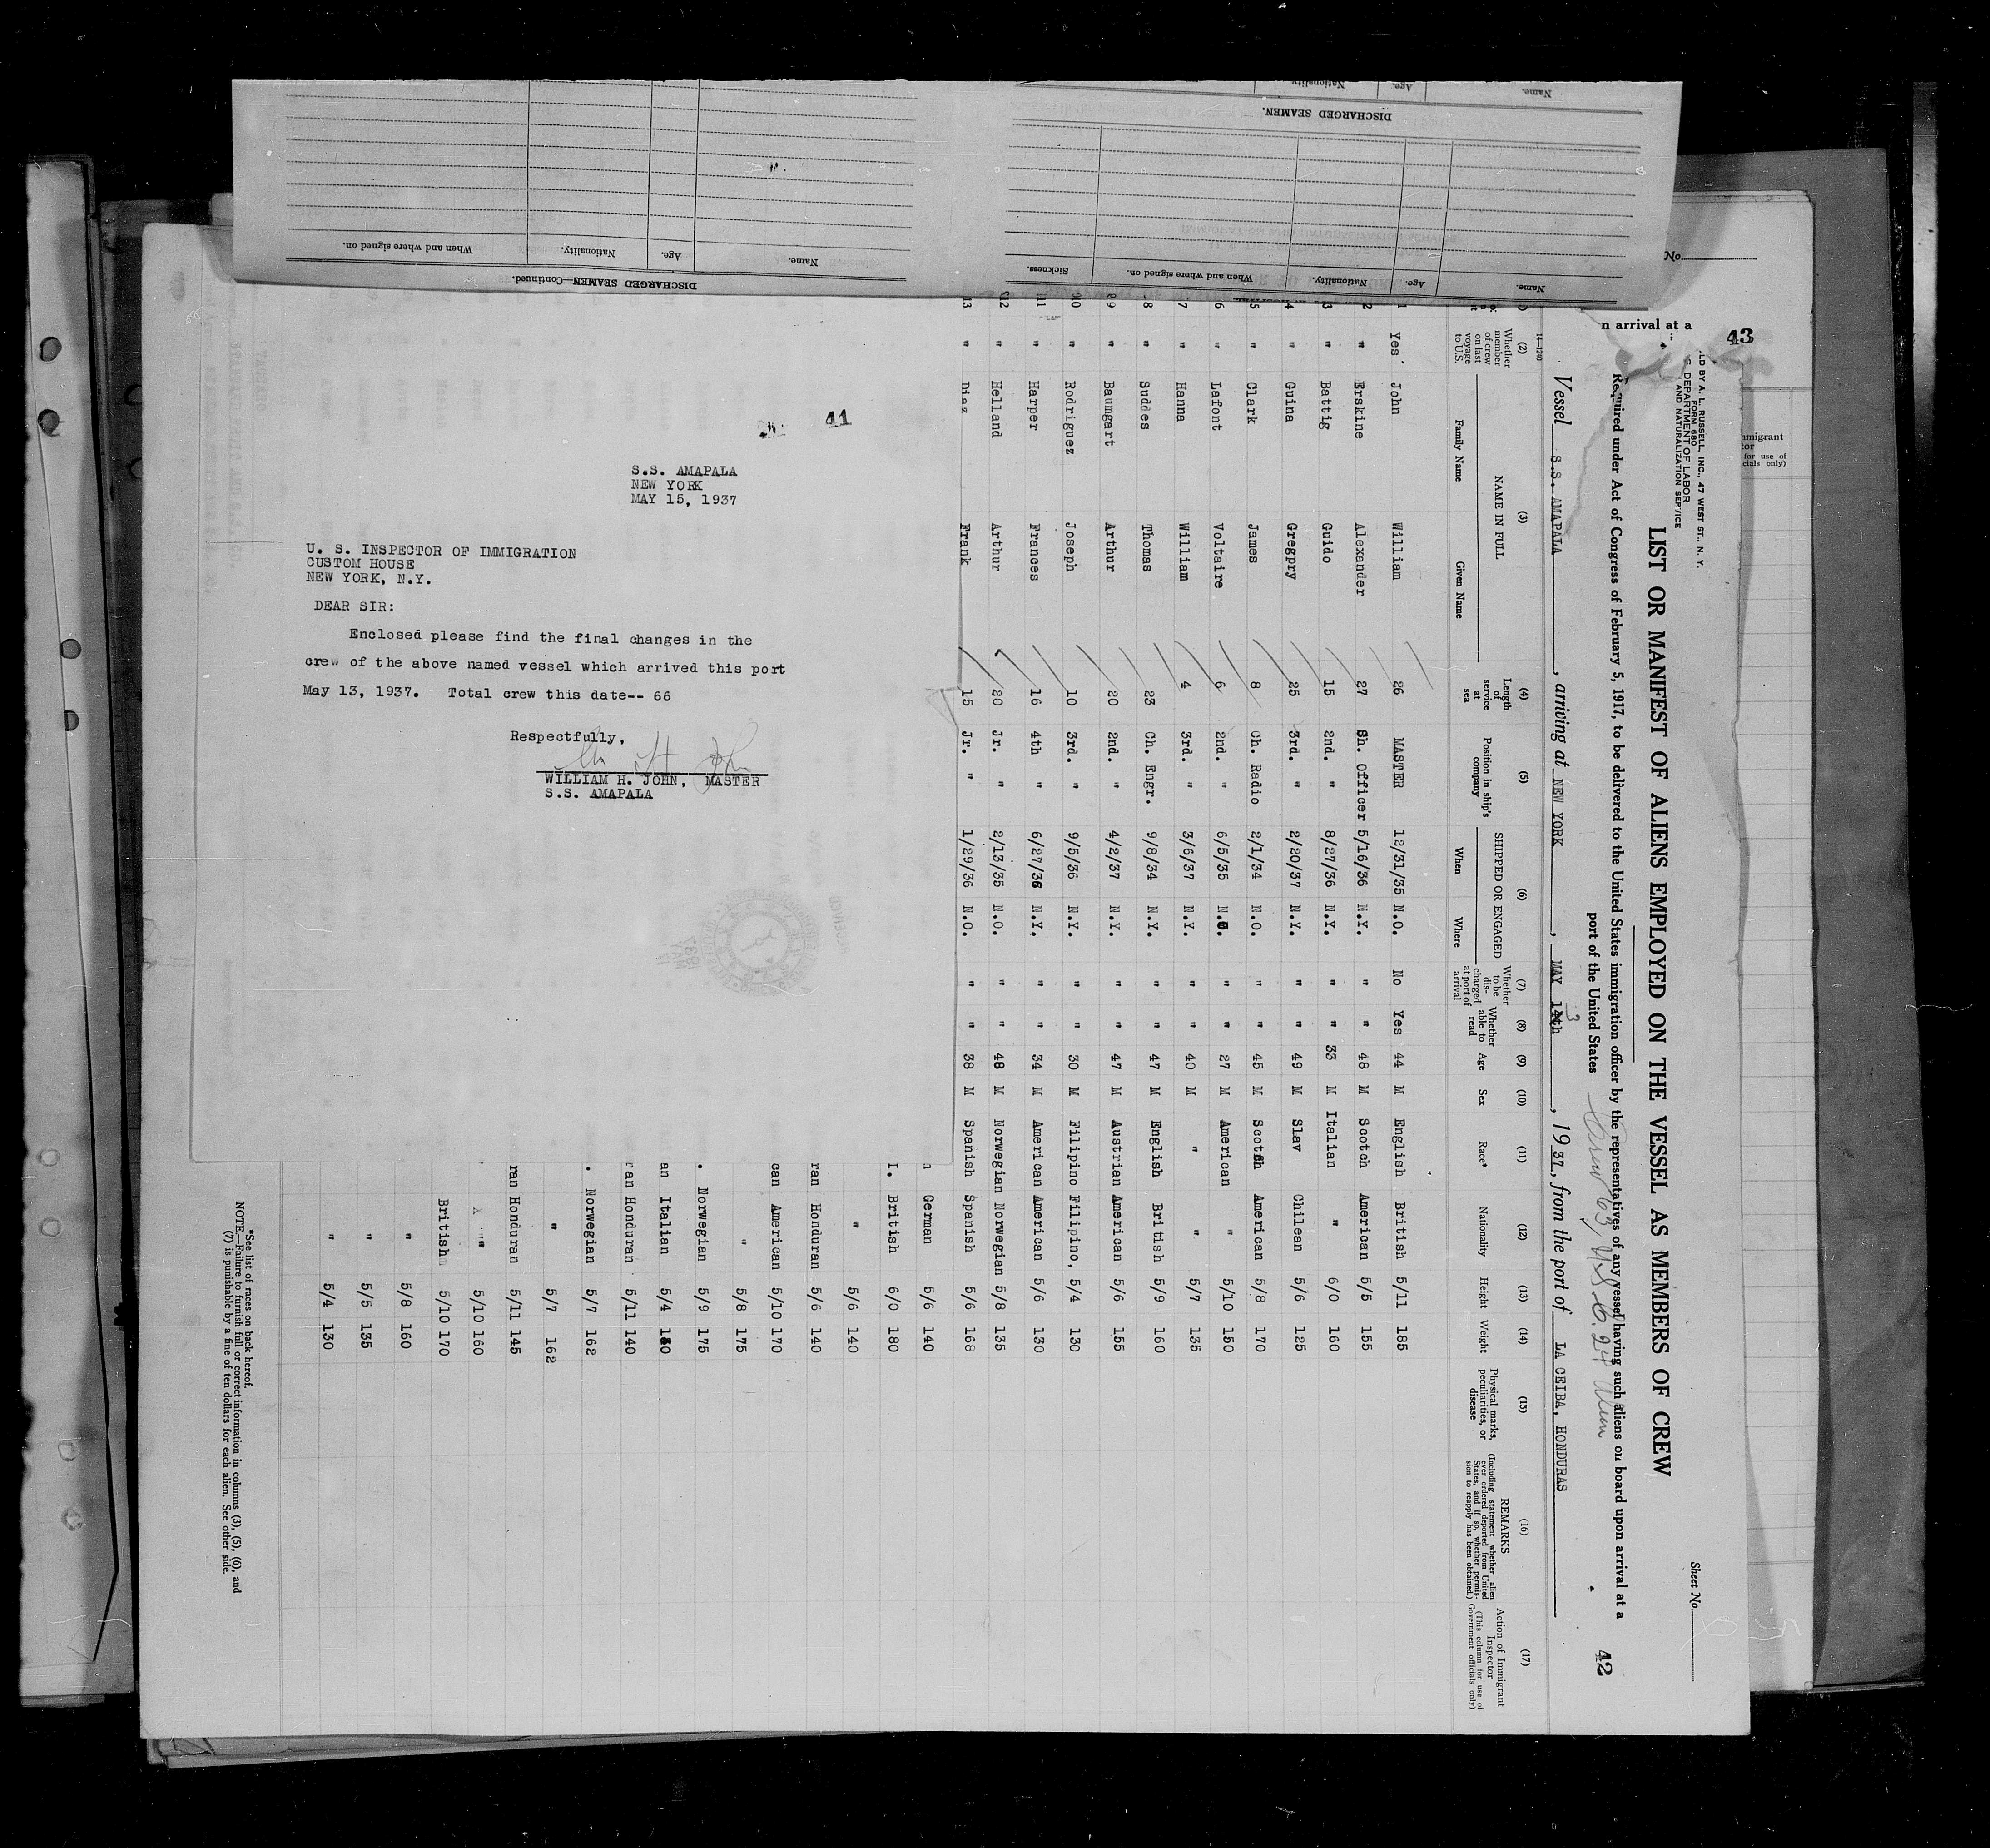 41
S.S. AMAPALA
NEW YORK
MAY 15, 1937
U. S. INSPECTOR OF IMMIGRATION
CUSTOM HOUSE
NEW YORK, N.Y.
DEAR SIR:
Enclosed please find the final changes in the
crew of the above named vessel which arrived this port
May 13, 1937. Total crew this date-- 66
Respectfully,
WILLIAM H. JOHN, MASTER
S.S. AMAPALA
DISCHARGED SEAMEN—Continued.
Name. Age. Nationality. When and where signed on.
DISCHARGED SEAMEN.
Name. Age. Nationality. When and where signed on. Sickness.
Name. Age. Nationality
No.
n arrival at a
43
mmigrant
tor
for use of
cials only)
Sheet No.
42
LD BY A. L. RUSSELL, INC., 47 WEST ST., N. Y.
FORM 680
DEPARTMENT OF LABOR
AND NATURALIZATION SERVICE
LIST OR MANIFEST OF ALIENS EMPLOYED ON THE VESSEL AS MEMBERS OF CREW
Required under Act of Congress of February 5, 1917, to be delivered to the United States immigration officer by the representatives of any vessel having such aliens on board upon arrival at a
port of the United States
Vessel S.S. AMAPALA, arriving at NEW YORK, MAY 13th, 1937, from the port of LA CEIBA, HONDURAS
14-1240
(2) (3) (4) (5) (6) (7) (8) (9) (10) (11) (12) (13) (14) (15) (16) (17)
Whether member of crew on last voyage to U.S.
NAME IN FULL
Family Name Given Name
Length of service at sea
Position in ship's company
SHIPPED OR ENGAGED
When Where
Whether to be discharged at port of arrival
Whether able to read
Age
Sex
Race*
Nationality
Height
Weight
Physical marks, peculiarities, or disease
REMARKS
(Including statement whether alien ever ordered deported from United States, and if so, whether permission to reapply has been obtained.)
Action of Immigrant Inspector
(This column for use of Government officials only)
1 Yes John William 26 MASTER 12/31/35 N.O. No Yes 44 M English British 5/11 185
2 " Erskine Alexander 27 Ch. Officer 5/16/36 N.Y. " " 48 M Scotch American 5/5 155
3 " Battig Guido 15 2nd. " 8/27/36 N.Y. " " 33 M Italian " 6/0 160
4 " Guina Gregpry 25 3rd. " 2/20/37 N.Y. " " 49 M Slav Chilean 5/6 125
5 " Clark James 8 Ch. Radio 2/1/34 N.O. " " 45 M Scotch American 5/8 170
6 " Lafont Voltaire 6 2nd. " 6/5/35 N.O. " " 27 M American " 5/10 150
7 " Hanna William 4 3rd. " 3/6/37 N.Y. " " 40 M " " 5/7 135
8 " Suddes Thomas 23 Ch. Engr. 9/8/34 N.Y. " " 47 M English British 5/9 160
9 " Baumgart Arthur 20 2nd. " 4/2/37 N.Y. " " 47 M Austrian American 5/6 155
10 " Rodriguez Joseph 10 3rd. " 9/5/36 N.Y. " " 30 M Filipino Filipino. 5/4 130
11 " Harper Frances 16 4th " 6/27/36 N.Y. " " 34 M American American 5/6 130
12 " Helland Arthur 20 Jr. " 2/13/35 N.O. " " 48 M Norwegian Norwegian 5/8 135
13 " Diaz Frank 15 Jr. " 1/29/36 N.O. " " 38 M Spanish Spanish 5/6 168
n German 5/6 140
I. British 6/0 180
" 5/6 140
ran Honduran 5/6 140
can American 5/10 170
" 5/8 175
. Norwegian 5/9 175
an Italian 5/4
ran Honduran 5/11 140
. Norwegian 5/7 162
" 5/7 162
ran Honduran 5/11 145
" 5/10 160
British 5/10 170
" 5/8 160
" 5/5 135
" 5/4 130
*See list of races on back hereof.
NOTE.—Failure to furnish full or correct information in columns (3), (5), (6), and
(7) is punishable by a fine of ten dollars for each alien. See other side.